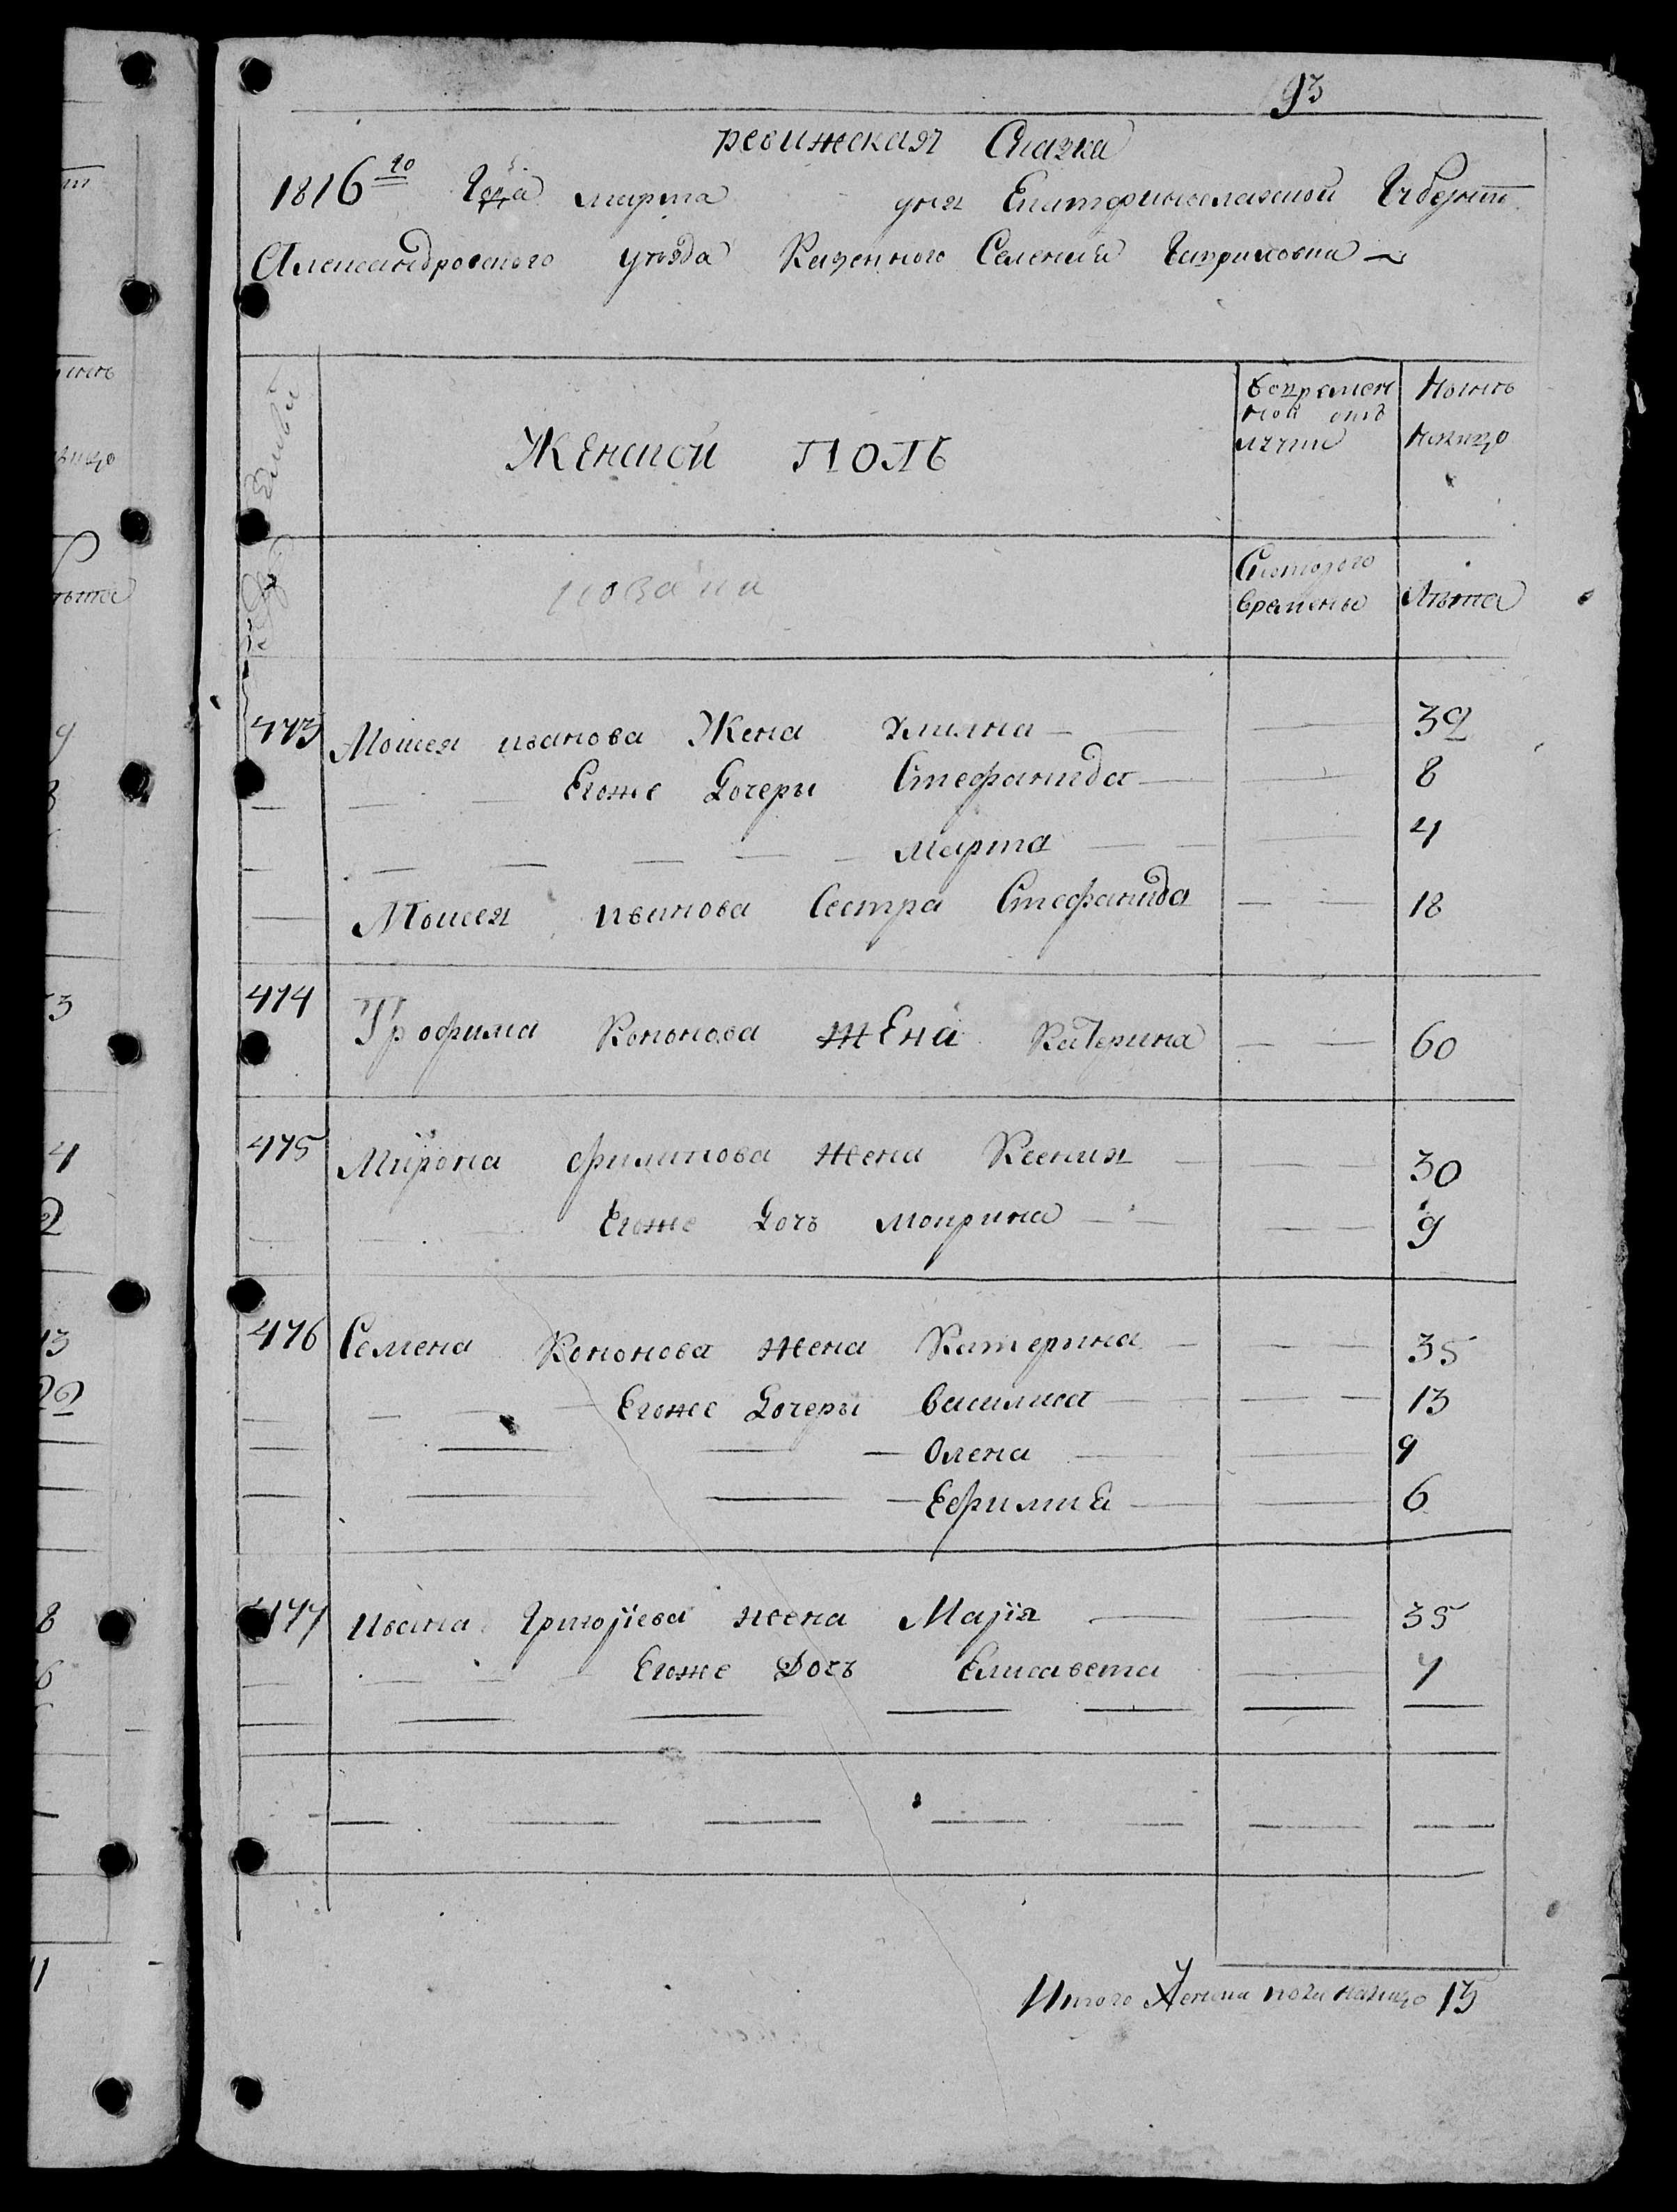 93
ревижская Сказка
1816го Года марта дня Екатеринославской Губерніи
Александровского уезда Казенного Селенія Гавриловки
Женской полъ
вовремен
ной отъ
лучки
Ныне
налицо
Скоторого
времени
Лѣта
473 Мосея иванова Жена Улияна 32
Егоже Дочери Стефанида 8
Марта 4
Мосея иванова Сестра Стефанида 18
474 Трофима Кононова жена Катерина 60
475 Мирона филипова жена Ксения 30
Егоже Дочь Мокрина 9
476 Семена Кононова жена Катерина 35
Егоже Дочери Василиса 13
Олена 9
Ефимиа 6
477 Ивана Григорiева жена Марiя 35
Егоже Дочь Елисавета 7
Итого Женска пола налицо 13